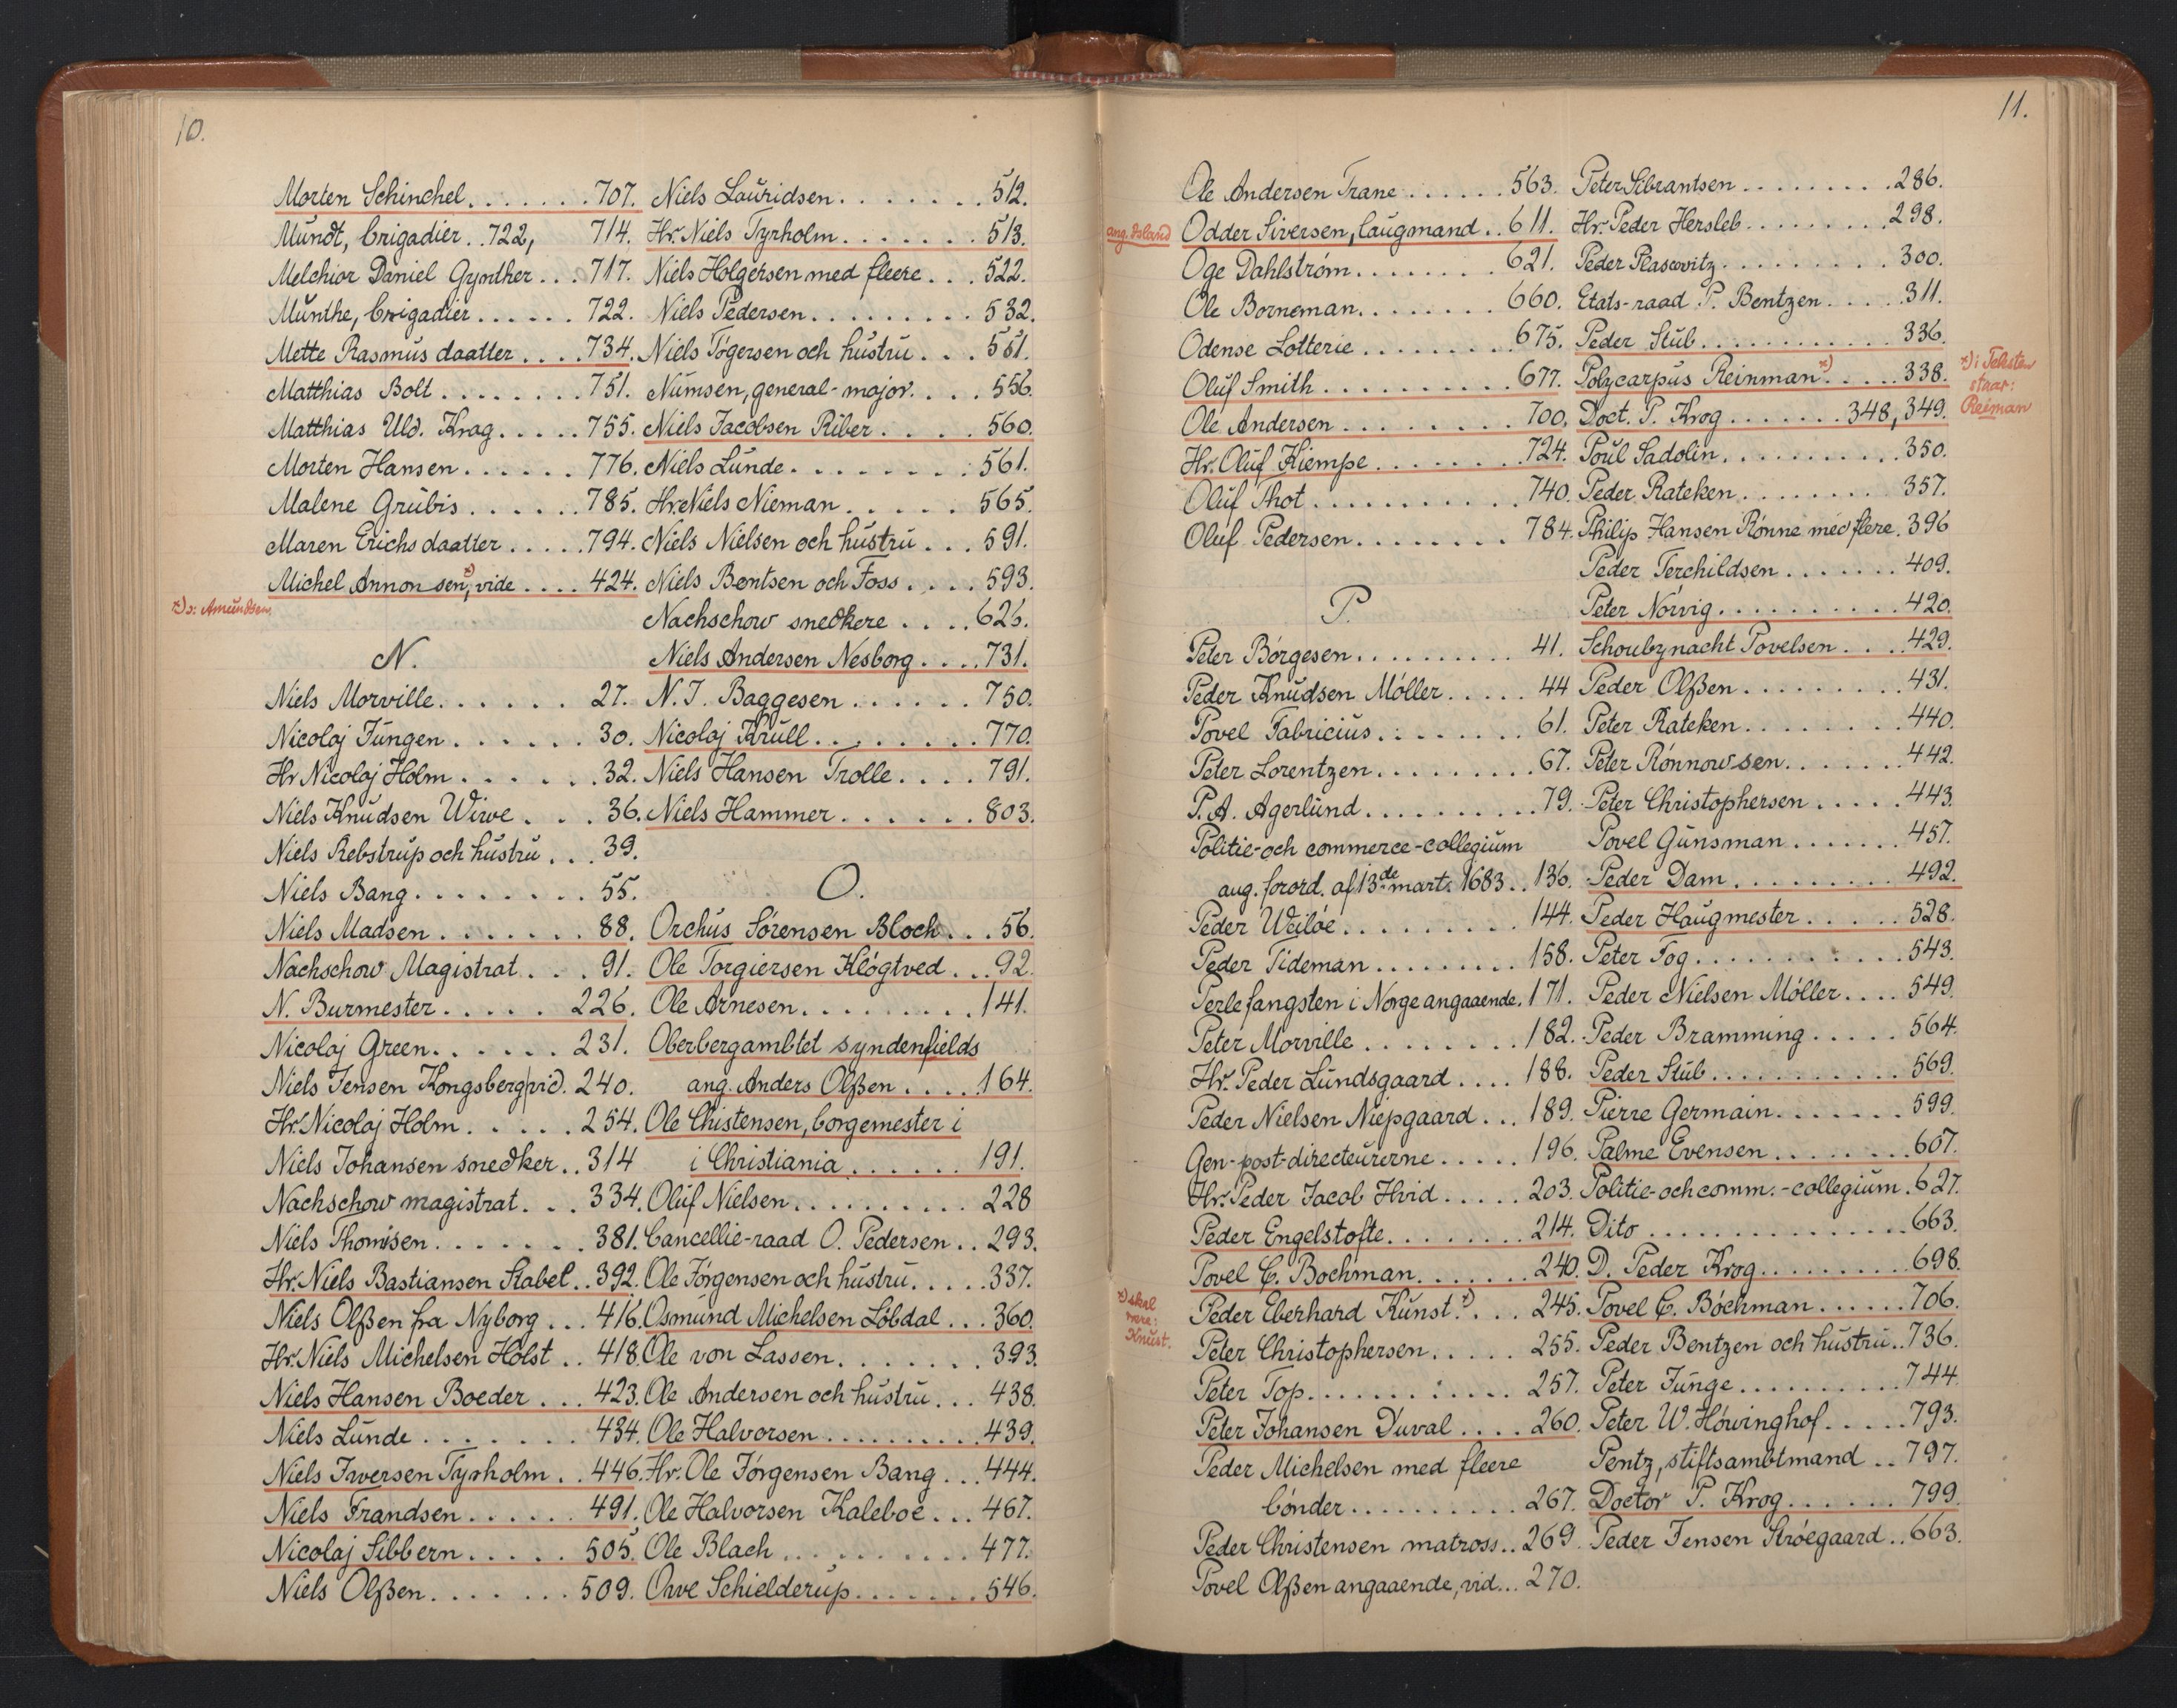 10.
Morten Schinchel. . . . . . . 707.
Mundt, brigadier. . 722, 714.
Melchior Daniel Gynther . . . 717.
Munthe, brigadier . . . . . . 722.
Mette Rasmus daatter . . . . 734.
Matthias Bolt . . . . . . . . 751.
Matthias Uld. Krag. . . . . 755.
Morten Hansen . . . . . . 776.
Malene Grubis . . . . . . 785.
Maren Erichs daatter . . . . . 794.
Michel Annon sen,ˣ⁾ vide . . . . 424.
ˣ⁾ ɔ: Amundsen.
N.
Niels Morville. . . . . . 27.
Nicolaj Jungen . . . . . . 30.
Hr Nicolaj Holm . . . . . . 32.
Niels Knudsen Wirve . . . 36.
Niels Rebstrup och hustru . . . 39.
Niels Bang . . . . . . . . 55.
Niels Madsen . . . . . . . 88.
Nachschow Magistrat . . . 91.
N. Burmester . . . . . 226.
Nicolaj Green. . . . . . 231.
Niels Jensen Kongsberg vid. 240.
Hr. Nicolaj Holm . . . . . 254.
Niels Johansen snedker . . 314
Nachschow magistrat. . . 334.
Niels Thomisen. . . . . . . 381.
Hr. Niels Bastiansen Stabel . . 392.
Niels Olßen fra Nyborg . . . 416.
Hr. Niels Michelsen Holst . . 418.
Niels Hansen Boeder . . . 423.
Niels Lunde . . . . . . . 434.
Niels Iversen Tyrholm . . 446.
Niels Frandsen . . . . . . 491.
Nicolaj Sibbern . . . . . 505.
Niels Olßen. . . . . . . 509.
Niels Lauridsen. . . . . . . . 512.
Hr. Niels Tyrholm . . . . . . . 513.
Niels Holgersen med fleere . . . 522.
Niels Pedersen. . . . . . . . . 532.
Niels Tögersen och hustru . . . 551.
Numsen, general-major. . . . 556.
Niels Jacobsen Riber . . . . 560.
Niels Lunde. . . . . . . . 561.
Hr. Niels Nieman . . . . . 565.
Niels Nielsen och hustru . . . 591.
Niels Bentsen och Foss . . . . 593.
Nachschow snedkere . . . . 626.
Niels Andersen Nesborg . . . . 731.
N. J. Baggesen . . . . . . 750.
Nicolaj Krull . . . . . . . . 770.
Niels Hansen Trolle . . . . 791.
Niels Hammer . . . . . . 803.
O.
Orchus Sörensen Bloch . . . 56.
Ole Torgiersen Klögtved . . . 92.
Ole Arnesen. . . . . . . . . 141.
Oberbergambtet syndenfields
ang. Anders Olßen . . . . 164.
Ole Chistensen, borgemester i
i Christiania . . . . . . 191.
Oluf Nielsen . . . . . . . . . . 228
Cancellie-raad O. Pedersen . . 293.
Ole Jörgensen och hustru . . . . . 337.
Osmund Michelsen Löbdal . . . 360.
Ole von Lassen. . . . . . . 393.
Ole Andersen och hustru . . . 438.
Ole Halvorsen . . . . . . . . . 439.
Hr. Ole Jörgensen Bang . . . 444.
Ole Halvorsen Kaleboe . . . 467.
Ole Blach . . . . . . . . . . 477.
Ove Schielderup . . . . . . . 546.
11.
Ole Andersen Trane . . . . . . 563.
ang. Island
Odder Siversen, laugmand . . 611.
Oge Dahlström . . . . . . . . 621.
Ole Borneman. . . . . . . . 660.
Odense Lotterie . . . . . . . . . 675.
Oluf Smith . . . . . . . . . . 677.
Ole Andersen . . . . . . . . . 700.
Hr. Oluf Kiempe . . . . . . . . 724.
Oluf Thot . . . . . . . . . . . 740.
Oluf Pedersen. . . . . . . . 784.
P.
Peter Börgesen. . . . . . . . . 41.
Peder Knudsen Möller . . . . . 44
Povel Fabricius . . . . . . . . 61.
Peter Lorentzen . . . . . . . . . 67.
P. A. Agerlund . . . . . . . . . . 79.
Politie- och commerce-collegium
ang. forord. af 13de mart. 1683 . . 136.
Peder Weilöe. . . . . . . . . 144.
Peder Tideman . . . . . . . . . 158.
Perlefangsten i Norge angaaende. 171.
Peter Morville . . . . . . . . 182.
Hr. Peder Lundsgaard . . . . 188.
Peder Nielsen Niepsgaard . . . 189.
Gen-post-directeurerne . . . . . 196.
Hr. Peder Jacob Hvid . . . . . 203.
Peder Engelstofte. . . . . . . . 214.
Povel C. Bochman. . . . . . . 240.
ˣ⁾ skal være: Knust.
Peder Eberhard Kunst.ˣ⁾ . . . 245.
Peter Christophersen . . . . . 255.
Peter Top . . . . . . . . . . . 257.
Peter Johansen Duval . . . . 260.
Peder Michelsen med fleere
bönder . . . . . . . . . . 267.
Peder Christensen matross . . 269.
Povel Olßen angaaende, vid . . . 270.
Peter Sibrantsen . . . . . . . . . 286.
Hr. Peder Hersleb . . . . . . . . . 298.
Peder Plascovitz . . . . . . . . . . 300.
Etats-raad P. Bentzen . . . . . 311.
Peder Stub . . . . . . . . . . . . 336.
Polycarpus Reinmanˣ⁾ . . . . . 338.
ˣ⁾ i Teksten staar: Reiman
Doct. P. Krog . . . . . . . 348, 349.
Poul Sadolin. . . . . . . . . . . 350.
Peder Rateken. . . . . . . . . 357.
Philip Hansen Rönne med flere . 396
Peder Terchildsen . . . . . . . 409.
Peter Nörvig . . . . . . . . . . 420.
Schoubynacht Povelsen . . . . 429.
Peder Olßen . . . . . . . . . 431.
Peter Rateken . . . . . . . . . 440.
Peter Rönnowsen . . . . . . . 442.
Peter Christophersen . . . . . 443.
Povel Gunsman . . . . . . . 457.
Peder Dam . . . . . . . . . 492.
Peder Haugmester . . . . . 528.
Peter Fog . . . . . . . . . . . 543.
Peder Nielsen Möller . . . . 549.
Peder Bramming . . . . . 564.
Peder Stub . . . . . . . . . . . 569.
Pierre Germain . . . . . . . 599.
Palme Evensen . . . . . . . . 607.
Politie- och comm.-collegium . 627.
Dito . . . . . . . . . . . . . . . 663.
D. Peder Krog . . . . . . . . . . 698.
Povel C. Böchman . . . . . . 706.
Peder Bentzen och hustru . . 736.
Peter Junge . . . . . . . . . . 744.
Peter W. Höwinghof . . . . . 793.
Pentz, stiftsambtmand . . 797.
Doctor P. Krog . . . . . . 799.
Peder Jensen Ströegaard . . 663.